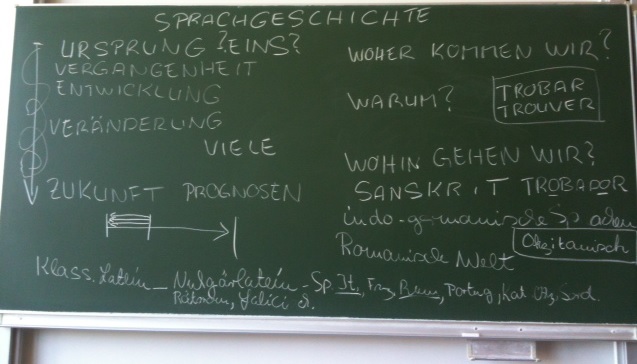 SPRACHGESCHICHTE
URSPRUNG? EINS?
VERGANGENHEIT
ENTWICKLUNG
VERÄNDERUNG
VIELE
ZUKUNFT PROGNOSEN
WOHER KOMMEN WIR?
WARUM?
TROBAR
TROUVER
WOHIN GEHEN WIR?
SANSKRIT TROBADOR
indo-germanische Sprachen
Romanische Welt
Okzitanisch
Klass. Latein - Vulgärlatein - Sp. It, Frz, Portug, Kat